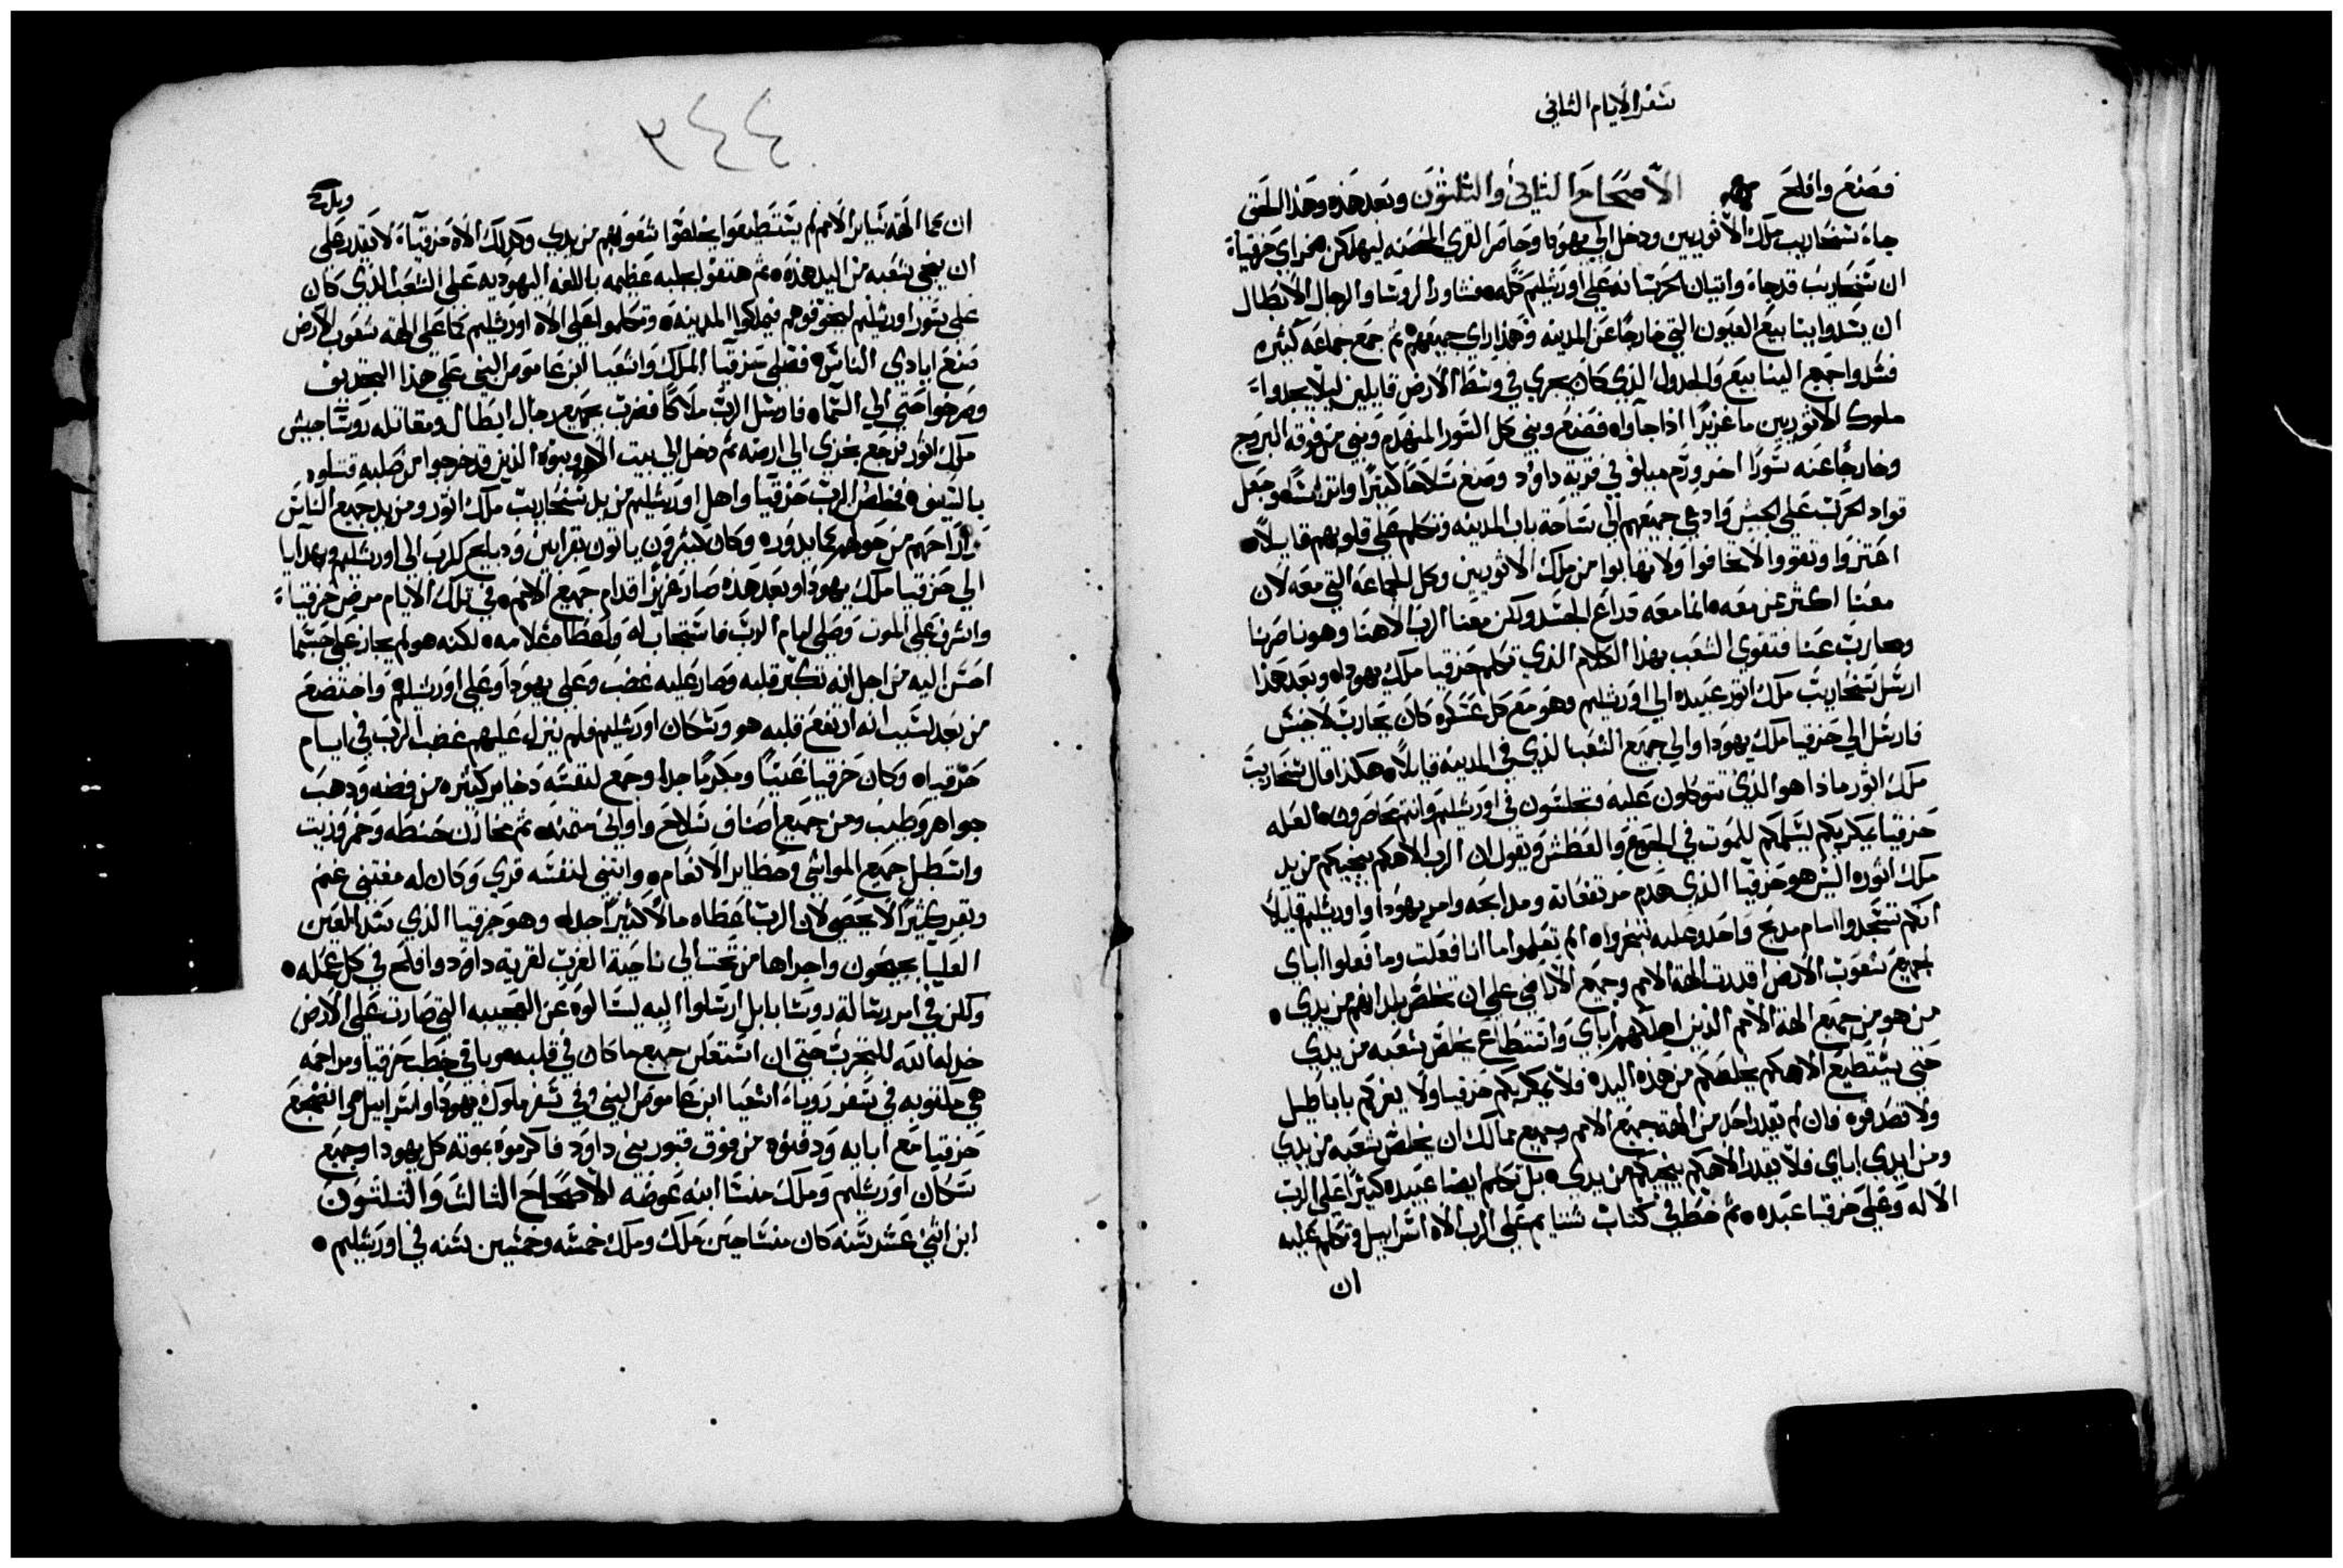 سفر الايام الثاني
فصنع وافلح الاصحاح الثاني والثلثون وبعد هذه وهذا الحق
جاء سنحاريب ملك الاثوريين ودخل الي يهودا وحاصر القري المحصنه ليهلكن فحزاي حزقياء
ان سنحاريب قد جاء واتيان الحرب انه علي اورشليم كله فشاور الروسا والرجال الابطال
ان يسدوا ينابيع العيون التي خارجا عن المدينه وهذا راي جميعهم ثم جمع جماعه كثيره
فسدوا جميع الينابيع والجدول الذي كان يجري في وسط الارض قايلين ليلا يجدوا
ملوك الاثوريين ما غزيرا اذا جآواه فصنع وبني كل السور المنهدم وبني من فوقه البروج
وخارجا عنه سورا اخر ورم ميلو في قرية داوود وصنع سلاحا كثيرا واتراسا وجعل
قواد الحرب علي الجيش وادعي جميعهم الي ساحة باب المدينه وتكلم علي قلوبهم قايلا
اعتزوا وتقووا لا تخافوا ولا تهابوا من ملك الاثوريين وكل الجماعه التي معه لان
معنا اكثر من معه انما معه ذراع الجسد ولكن معنا الرب الاهنا وهو ناصرنا
ومحارب عنا فتقوي الشعب بهذا الكلام الذي تكلم حزقيا ملك يهودا وبعد هذا
ارسل سنحاريب ملك اثور عبيده الي اورشليم وهو مع كل عسكره كان يحارب لاخيس
فارسل الي حزقيا ملك يهودا والي جميع الشعب الذي في المدينه قايلا هكذا قال سنحاريب
ملك اثور ماذا هو الذي تتوكلون عليه وتجلسون في اورشليم وانتم محاصرون العله
حزقيا يمكر بكم ليسلمكم للموت في الجوع والعطش ويقول ان الرب الاهكم ينجيكم من يد
ملك اثور اليس هو حزقيا الذي هدم مرتفعاته ومدابحه وامر يهودا واورشليم قايلا
انكم تسجدوا امام مدبح واحد وعليه تبخروا الم تعلموا ما انا فعلت وما فعلوا اباي
لجميع شعوب الارض اقدرت الهة الامم وجميع الاراضي علي ان تخلص بلدانهم من يدي
من هو من جميع الهة الامم الذين اهلكهم اباي واستطاع يخلص شعبه من يدي
حتي يستطيع الاهكم يخلصكم من هذه اليد فلا يمكر بكم حزقيا ولا يغركم باباطيل
ولا تصدقوه فان لم يقدر احد من الهة جميع الامم وجميع ممالك ان يخلص شعبه من يدي
ومن ايدي اباي فلا يقدر الاهكم ينجيكم من يدي بل تكلم ايضا عبيده كثيرا علي الرب
الاله وعلي حزقيا عبده ثم خط في كتاب شتايم علي الرب الاه اسراييل وتكلم عليه
ان
٢٤٤
ان كما الهة ساير الامم لم يستطيعوا يخلصوا شعوبهم من يدي وكذلك الاه حزقياء لا يقدر علي
ان ينجي شعبه من اليد هذه ثم هتفوا بجلبه عظيمه باللغه اليهوديه علي الشعب الذي كان
علي سور اورشليم ليخوفوهم فيملكوا المدينه وتكلموا علي الاه اورشليم كما علي الهة شعوب الارض
صنع ايادي الناس فصلي حزقيا الملك واشعيا ابن عاموص النبي علي هذا التجديف
وصرخوا حتي الي السماء فارسل الرب ملاكا فضرب جميع رجال ابطال ومقاتله روسا جيش
ملك اثور فرجع بخزي الي ارضه ثم دخل الي بيت الاهه وبنوه الذين قد خرجوا من صلبه قتلوه
بالسيف فخلص الرب حزقيا واهل اورشليم من يد سنحاريب ملك اثور ومن يد جميع الناس
واراحهم من حولهم كما يدوره وكان كثيرون ياتون بقرابين ودبايح للرب الي اورشليم وهدايا
الي حزقيا ملك يهودا وبعد هذه صار عزيزا قدام جميع الامم في تلك الايام مرض حزقياء
واشرف علي الموت وصلي امام الرب فاستجاب له واعطا معلامه لكنه هو لم يجاز علي حسبما
احسن اليه من اجل انه تكبر قلبه وصار عليه غضب وعلي يهودا وعلي اورشليم واختضع
من بعد لسبب انه ارتفع قلبه هو وسكان اورشليم فلم ينزل عليهم غضب الرب في ايام
حزقيا وكان حزقيا غنيا ومكرما جدا وجمع لنفسه دخاير كثيره من فضه ودهب
جواهر وطيب ومن جميع اصناف سلاح واواني متمنه ثم مخازن حنطه وخمر وزيت
واسطبل جميع المواشي وحظاير الانعام وابتني لنفسه قري وكان له مقتني غنم
وبقر كثيرا لا يحصي لان الرب اعطاه مالا كثيرا جدا وهو حزقيا الذي سد العين
العليا بجيحون واجراها من تحت الي ناحية الغرب لقرية داود وافلح في كل عمله
ولكن في امر رسالة روسا بابل ارسلوا اليه ليسالوه عن العجيبه التي صارت علي الارض
خدله الله للتجرب حتي ان استعلن جميع ما كان في قلبه وباقي خطب حزقيا ومراحمه
هي مكتوبه في سفر روياء اشعيا ابن عاموص النبي وفي سفر ملوك يهودا واسراييل ثم انضجع
حزقيا مع ابايه ودفنوه من فوق قبور بني داود فاكرموه بموته كل يهودا وجميع
سكان اورشليم وملك منسا ابنه عوضه الاصحاح الثالث والثلثون
ابن اثني عشر سنه كان منسا حين ملك وملك خمسه وخمسين سنه في اورشليم